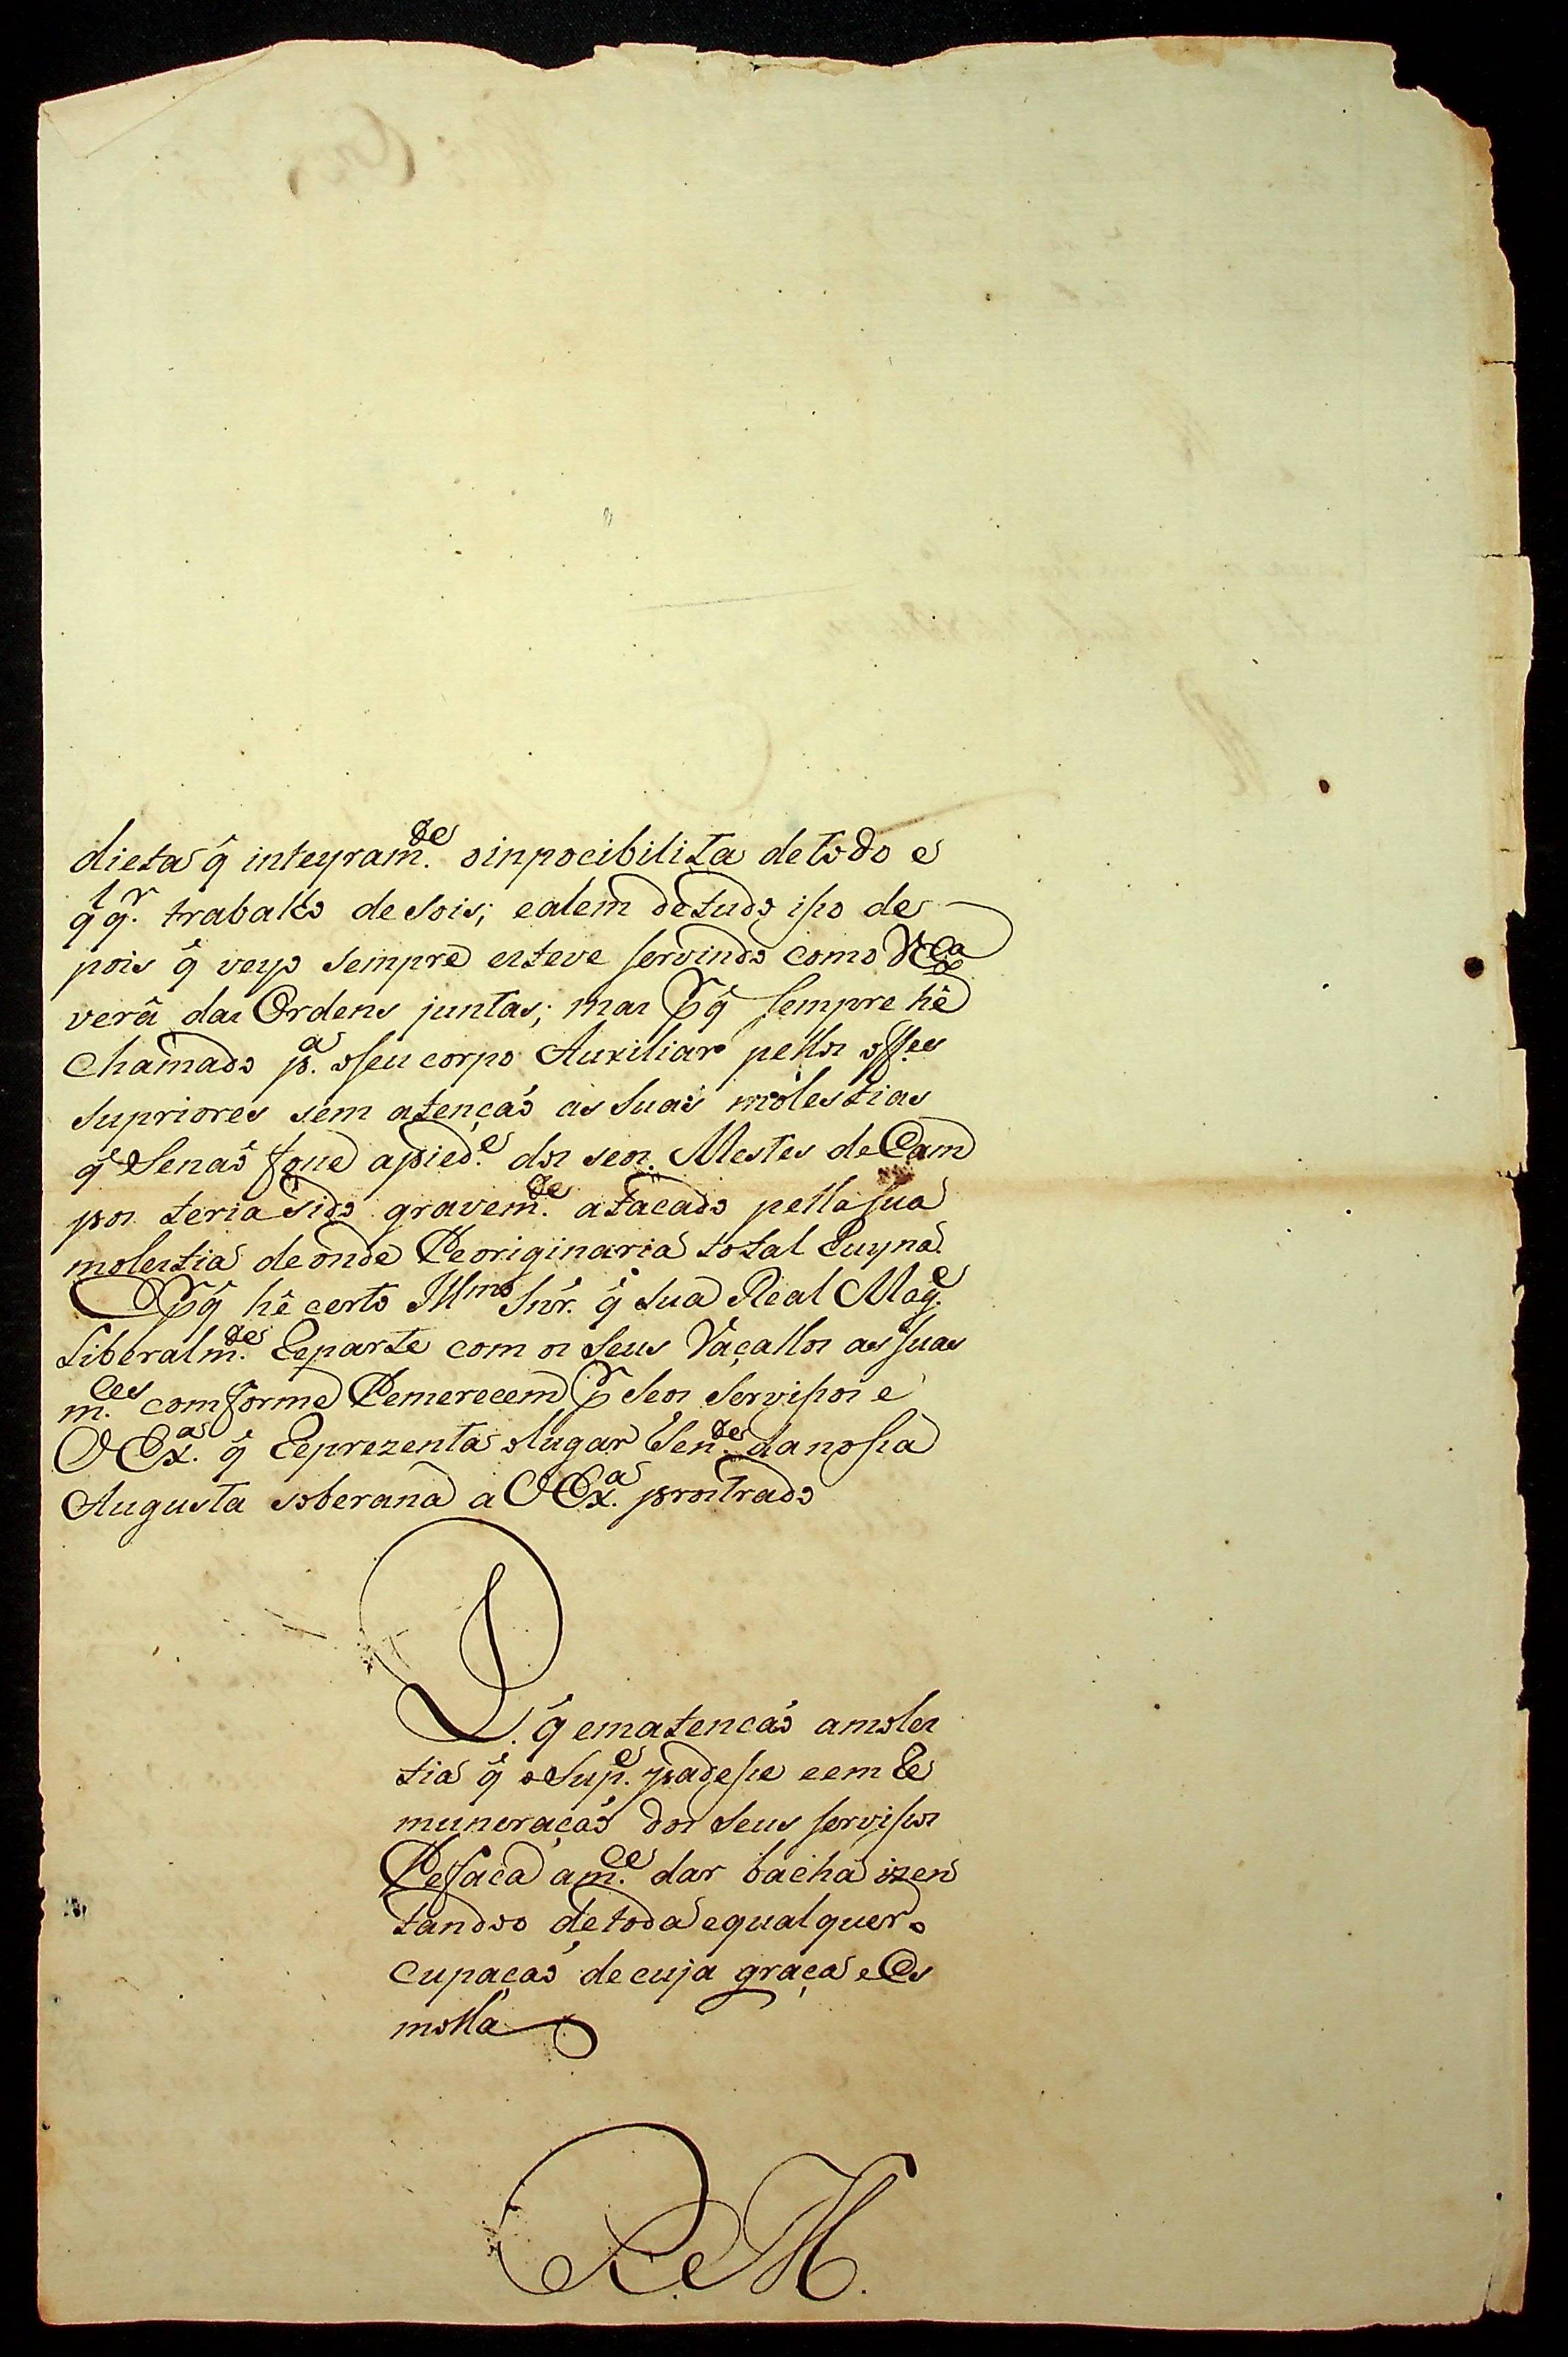 dieta q̃ inteyram.te oinpocibilita detodo e
qlq.r trabalho desois; ealem detudo iso de
pois q̃ veyo sempre esteve servindo como VExa
verâ das Ordens juntas; mas P q̃ sempre hê
Chamado p.a oseu corpo Auxiliar pellos off.es
supriores sem atençaõ as suas molestias
q̃ Senaõ foue apied.e dos seos. Mestes deCam
pos teria sido gravem.te atacado pella sua
molestia deonde lhe originaria total Ruyna.
P q̃ hê certo Illmo Snr. q̃ Sua Real Mag.e
Liberalm.te Reparte com os seus Vaçallos as suas
m.ces comforme lhemerecem P seos serviços e
VEx.a q̃ Reprezenta olugar Len.te danossa
Augusta soberana a VEx.a prostrado
P. q̃ ematencaõ amoles
tia q̃ oSup.e padesse eem Re
muneraçaõ dos seus servisos
lhefaca am.ce dar baicha izen
tandoo detoda equalquer o
cupaçaõ, decuja graça e Es
molla
R. e M.